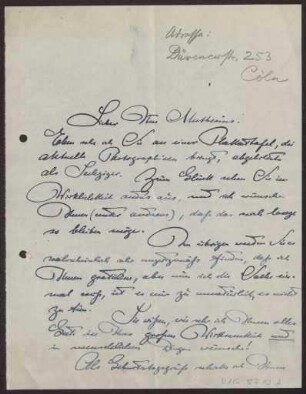 Adresse:
Dürenerstr. 253
Cöln
Lieber Herr Muthesius:
Eben sehe ich Sie an einer Plakattafel, die
aktuelle Photographien bringt, abgebildet
als Fünfziger. Zum Glück sehen Sie in
Wirklichkeit anders aus, und ich wünsche
Ihnen (unter anderem), daß das noch lange
so bleiben möge.
Im übrigen werden Sie
wahrscheinlich als
Ihnen gratuliere, aber wie ich die Sache
mal weiß, ist es mir zu natürlich, es nicht
zu tun.
Sie wissen, wie sehr ich Ihnen alles
Gute in Ihrer großen Wirksamkeit und
in menschlichen Dingen wünsche!
Als Geburtstagsgruß schicke ich Ihnen